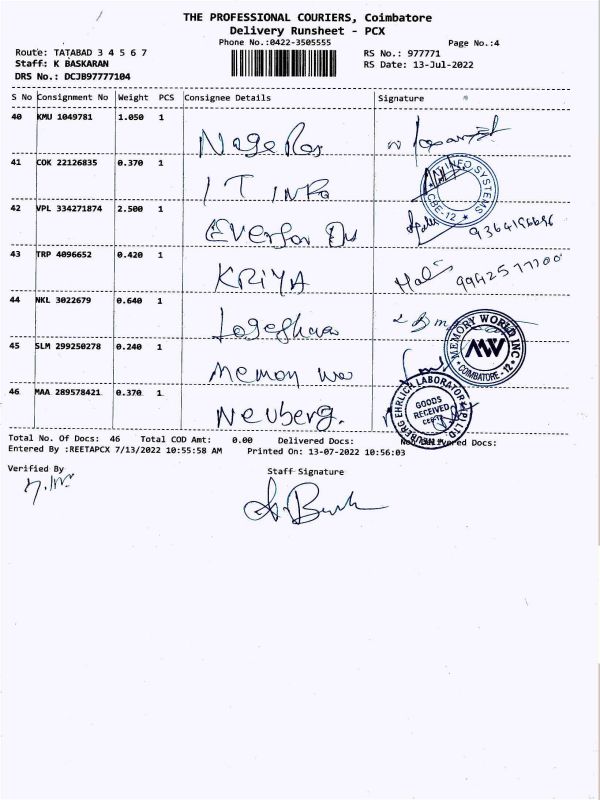 THE PROFESSIONAL COURIERS, Coimbatore
Delivery Runsheet - PCX
Phone No.:0422-3505555
Page No.:4
Route: TATABAD 3 4 5 6 7
RS No.: 977771
Staff: K BASKARAN
RS Date: 13-Jul-2022
DRS No.: DCJB97777104
S No Consignment No Weight PCS Consignee Details Signature
40 KMU 1049781 1.050 1
41 COK 22126835 0.370 1 IT INFO
42 VPL 334271874 2.500 1
43 TRP 4096652 0.420 1 KRIYA
44 NKL 3022679 0.640 1
45 SLM 299250278 0.240 1
MEMORY WORLD INC. COIMBATORE - 12. MW
46 MAA 289578421 0.370 1 Neuberg.
GOODS RECEIVED
Total No. Of Docs: 46 Total COD Amt: 0.00 Delivered Docs: Non Delivered Docs:
Entered By :REETAPCX 7/13/2022 10:55:58 AM Printed On: 13-07-2022 10:56:03
Verified By
Staff Signature